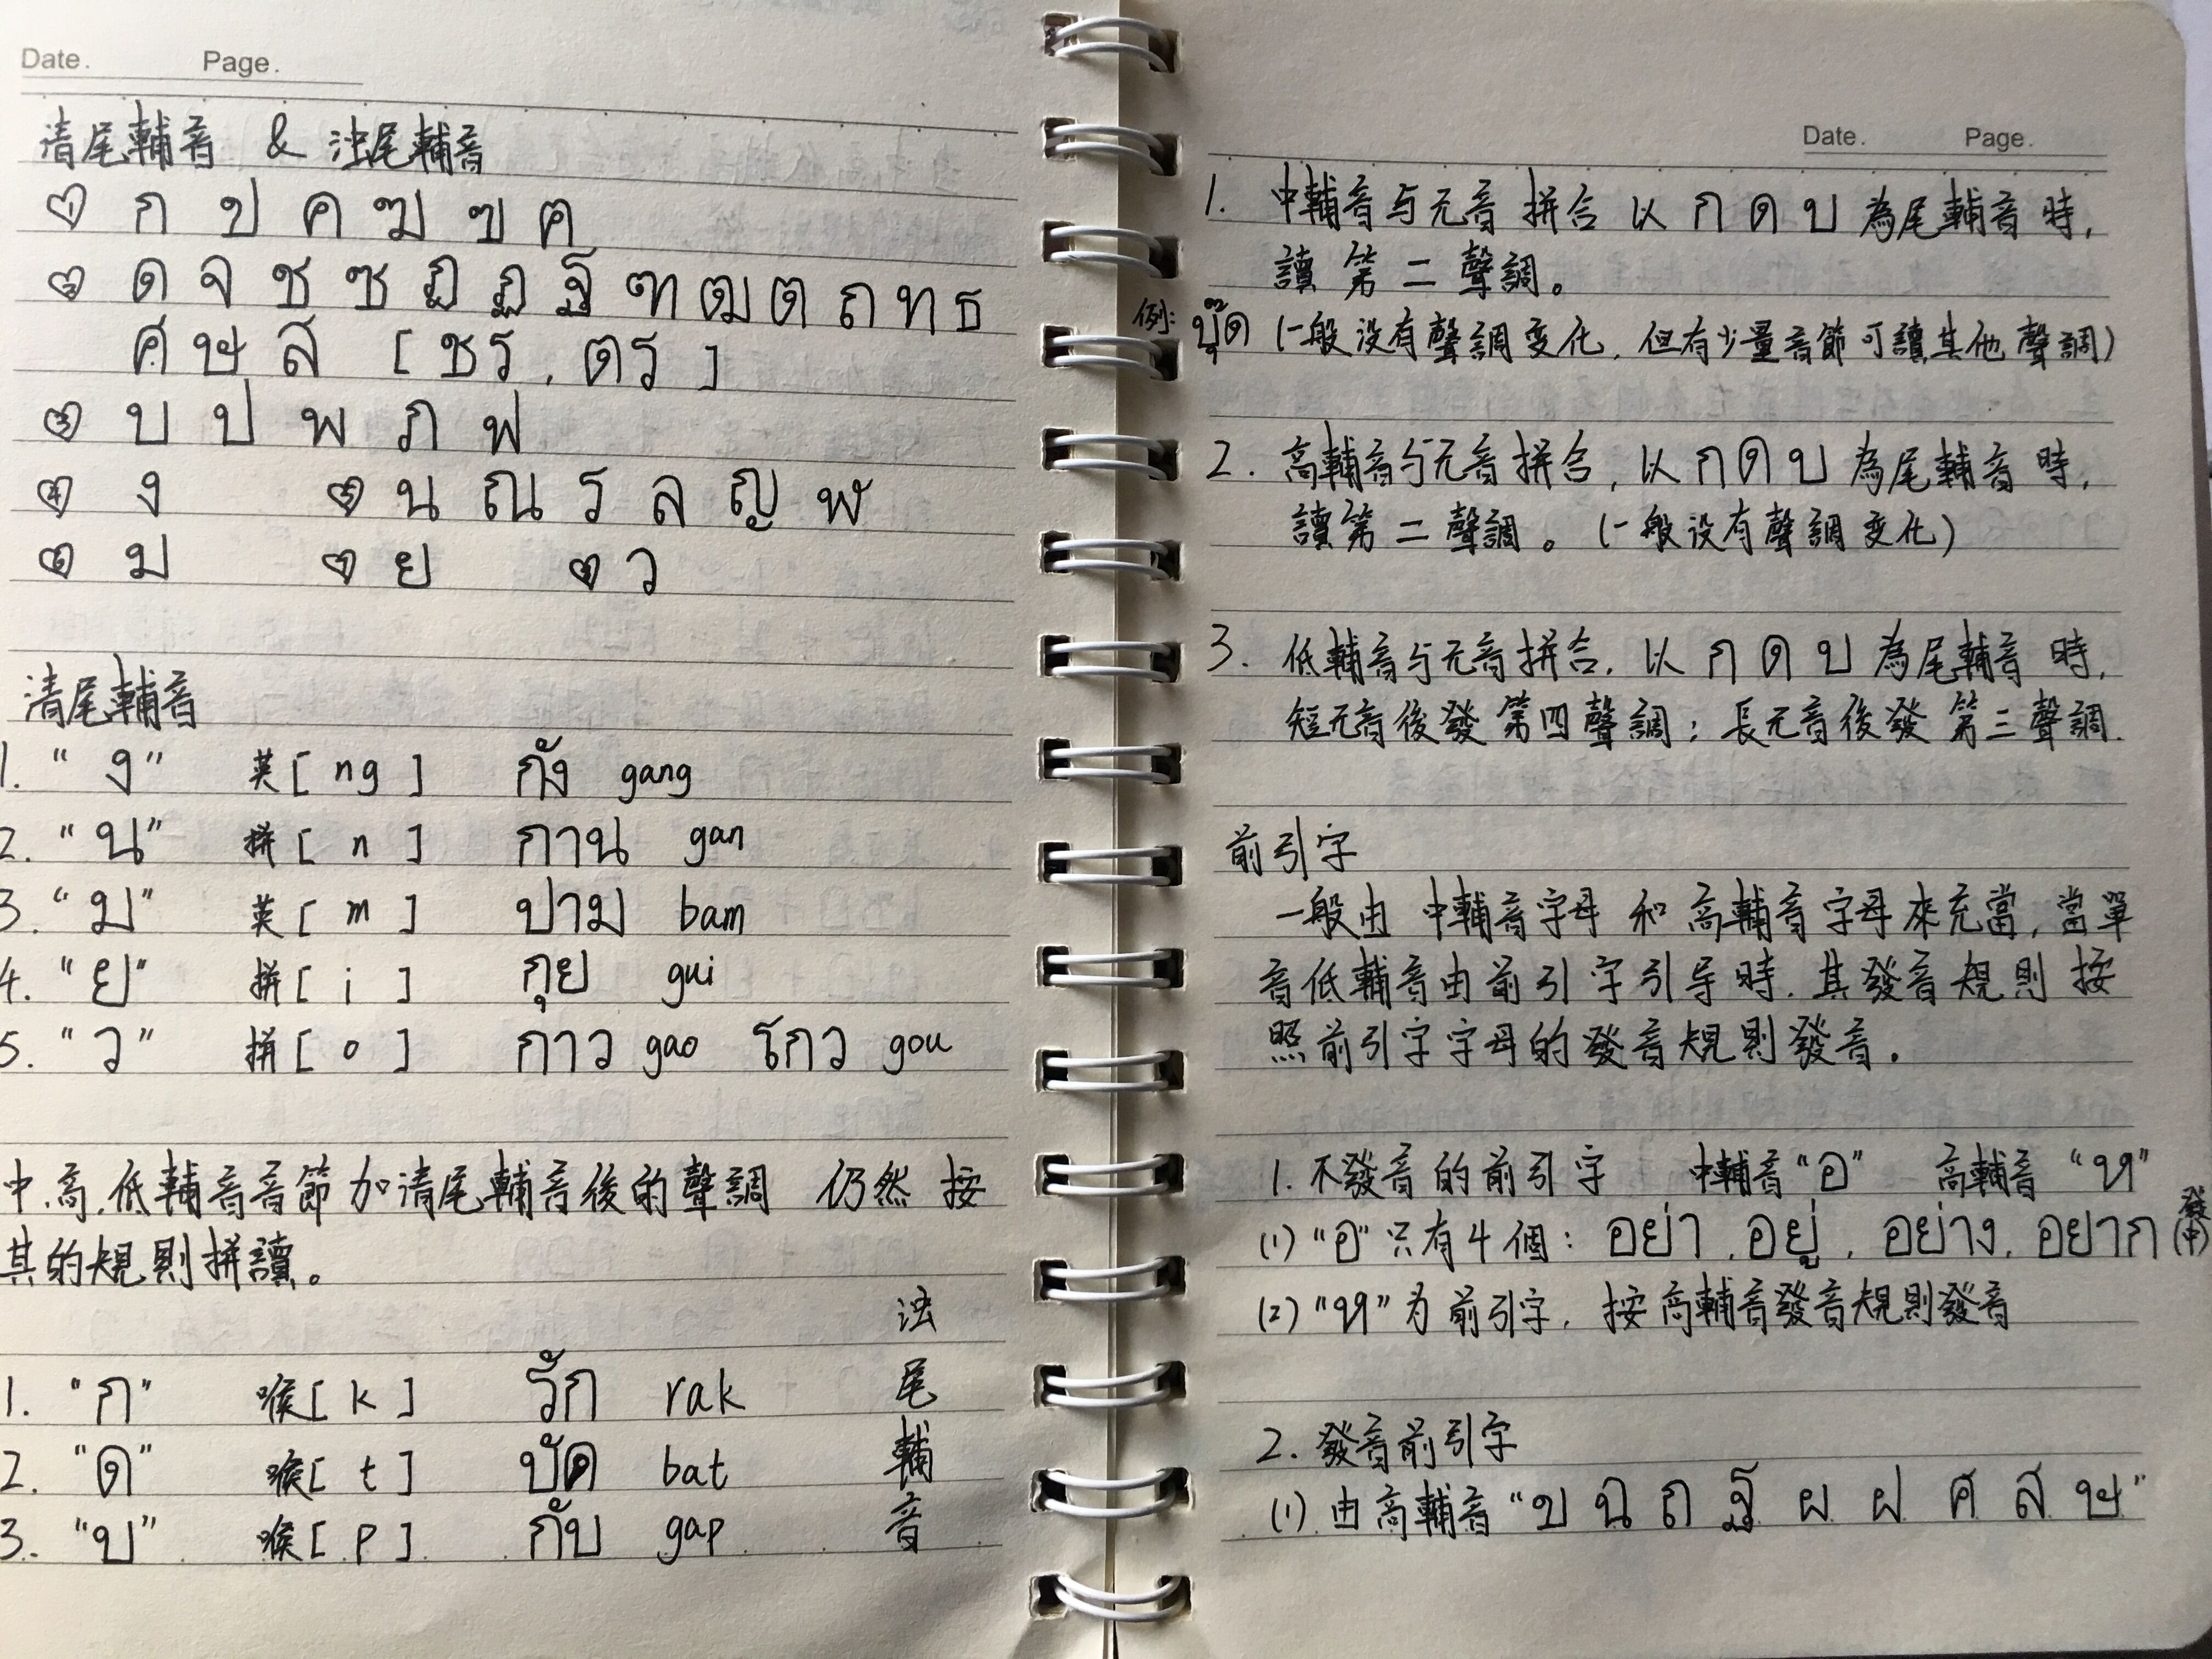 Date. Page.
清尾輔音 & 浊尾輔音
① ก ข ค ฆ ฃ ฅ
② ด จ ช ซ ฎ ฏ ฐ ฑ ฒ ต ถ ท ธ
ศ ษ ส [ ชร , ตร ]
③ บ ป พ ภ ฟ
④ ง ⑤ น ณ ร ล ญ ฬ
⑥ ม ⑦ ย ⑧ ว
清尾輔音
1. "ง" 英[ ng ] กัง gang
2. "น" 拼[ n ] กาน gan
3. "ม" 英[ m ] ปาม bam
4. "ย" 拼[ i ] กุย gui
5. "ว" 拼[ o ] กาว gao โกว gou
中.高.低輔音音節加清尾輔音後的聲調 仍然按
其的規則拼讀。
浊尾輔音
1. "ก" 喉[ k ] รัก rak
2. "ด" 喉[ t ] ปัด bat
3. "บ" 喉[ p ] กับ gap
Date. Page.
1. 中輔音与元音拼合 以 ก ด บ 為尾輔音時,
讀第二聲調。
例: (一般没有聲調变化, 但有少量音節可讀其他聲調)
2. 高輔音与元音拼合, 以 ก ด บ 為尾輔音時,
讀第二聲調。(一般没有聲調变化)
3. 低輔音与元音拼合, 以 ก ด บ 為尾輔音時,
短元音後發第四聲調; 長元音後發第三聲調.
前引字
一般由 中輔音字母 和 高輔音字母來充當, 當單
音低輔音由前引字引导時, 其發音規則按
照前引字字母的發音規則發音.
1. 不發音的前引字 中輔音"อ" 高輔音 "ห"
(1) "อ"只有4個: อย่า, อยู่, อย่าง, อยาก (發中)
(2) "ห"为前引字, 按高輔音發音規則發音
2. 發音前引字
(1) 由高輔音 "ข ฉ ถ ฐ ผ ฝ ศ ส ษ"